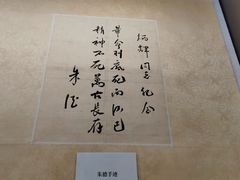 炳輝同志纪念
革命到底死而後已
精神不死萬古長存
朱德
朱德手迹